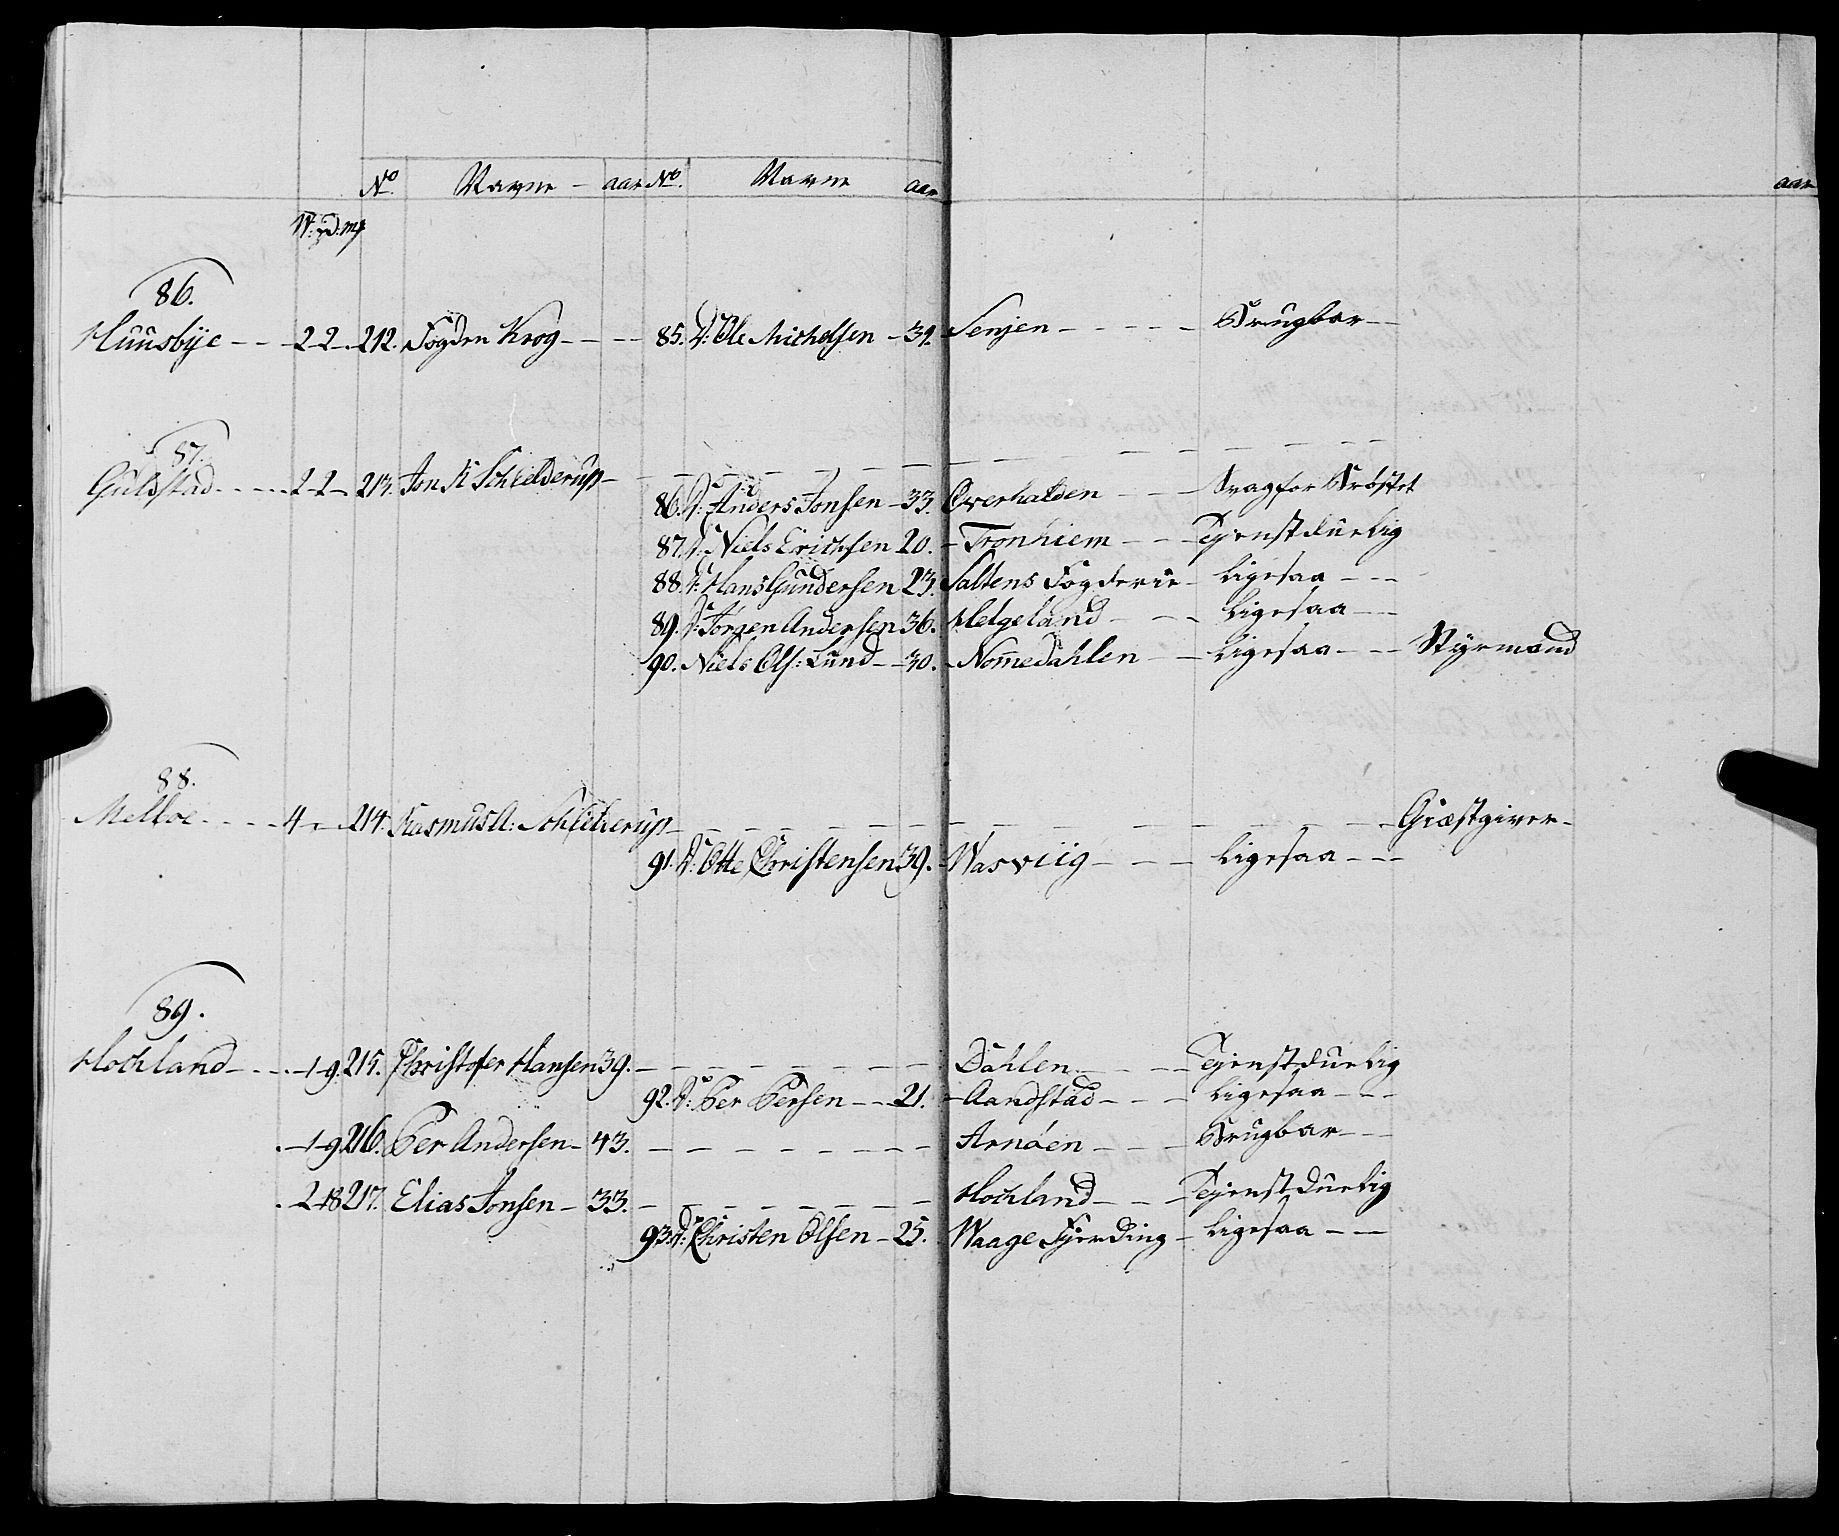 No. Navne - aar No. Navne aar aar
W: pd: mk
86.
Huusbÿe - - 2 - 2 - 212. Fogden Krog - - - 85. D: Ole Michelsen - 39. Senjen - - - - - Brugbar - -
87.
Guldstad - - - - 2 - 2 - 213. Jon K Schielderup -
86. D: Anders Jonsen - 33. Overhalden - - - Svag for Brÿstet
87. D: Niels Erichsen 20. - Tronhiem - - - Tjenstduelig
88. D: Hans Gundersen 23. Saltens Fogderie - Ligesaa - - -
89. D: Jörgen Andersen 36. Helgeland - - - Ligesaa - -
90. Niels Ols: Lund - - 30. - Nomedahlen - - Ligesaa - - - Stÿrmand
88.
Melloe - - - - 4 - - 214. Rasmus A: Schielderup - - - - - - - Giæstgiver -
91. D: Otte Christensen 39. - Wasviig - - - Ligesaa - - -
89.
Hochland - - - - 1 - 9. 215. Christofer Hansen 39. - - - - - - - Dahlen - - - - Tjenstduelig
92. D: Per Persen - - 21. - Aandstad - - - Ligesaa - - -
- 1 - 9 216. Per Andersen - 43. - - - - - - - Arnöen - - - Brugbar - - -
- 2 - 18 217. Elias Jonsen - 33. - - - - - - - Hochland - - - Tjenstduelig
93. D: Christen Olsen - 25. Waage Fjerding - Ligesaa - - -